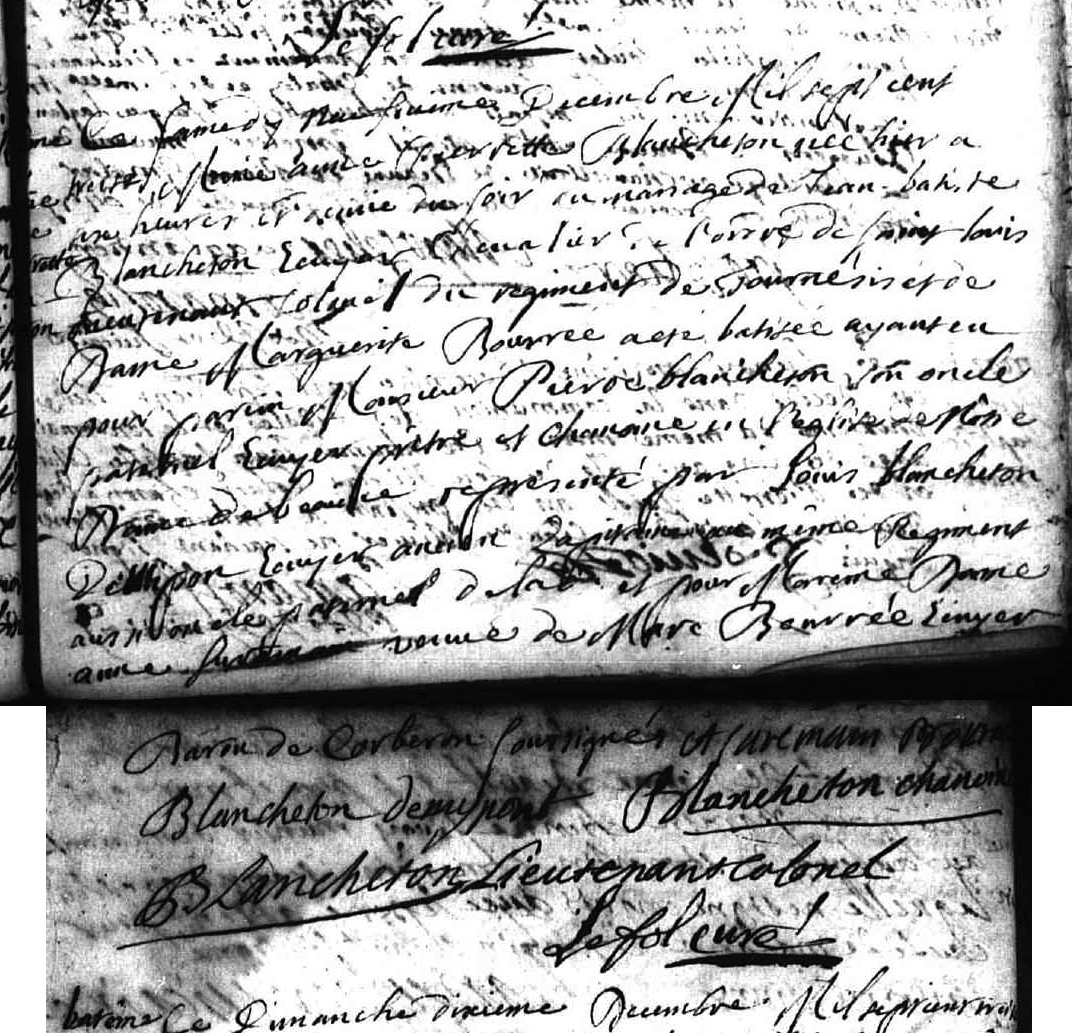 Lefol curé
Ce samedy neufvieme Decembre Mil sept cent
treise, Marie anne Pierrette Blancheton née hier a
six heures et demie du soir du mariage de Jean-batiste
Blancheton Ecuyer Chevalier de l'ordre de saint louis
Lieutenant Colonel du regiment de Tournésis et de
Dame Marguerite Bourrée a eté batisée ayant eu
pour parin Monsieur Pierre blancheton son oncle
paternel Ecuyer prêtre et chanoine en l'eglise de Notre
Dame de beaune représenté par Louis blancheton
Ecuyer ancien Capitaine au même Regiment
aussi oncle paternel et pour Marreine Dame
anne suremain veuve de Marc Bourrée Ecuyer
Baron de Corberon soussignés et suremain Bourée
Blancheton demypont Blancheton chanoine
Blancheton Lieutenant Colonel
Lefol curé
batême Ce Dimanche dixieme Decembre Mil sept cent